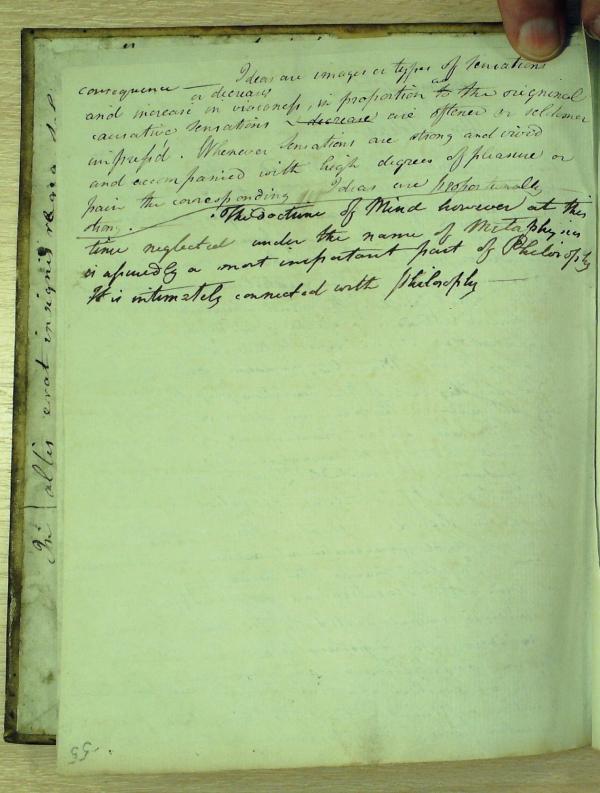 consequence — Ideas are images or types of sensations
or decrease
and increase in vividness, in proportion to as the original
causative sensations decrease are oftener or seldomer
impress'd. Whenever Sensations are strong and vivid
and accompanied with high degrees of pleasure or
pain the corresponding Ideas are proportionally
strong.
The doctrine of Mind however at this
time neglected under the name of Metaphysics
is assuredly a most important part of Philosophy
It is intimately connected with philosophy
erat insignis
55.